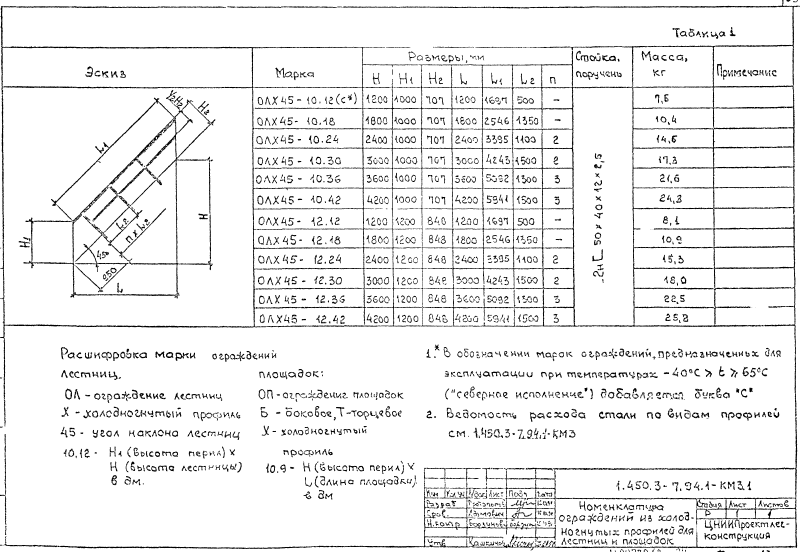 Таблица 1
Эскиз Марка Размеры, мм Стойка, поручень Масса, кг Примечание
H H1 H2 L L1 L2 n
ОЛХ45-10.12(С*) 1200 1000 707 1200 1697 500 –
ОЛХ45-10.18 1800 1000 707 1800 2546 1350 – 10,4
ОЛХ45-10.24 2400 1000 707 2400 3395 1100 2
ОЛХ45-10.30 3000 1000 707 3000 4243 1500 2 17,3
ОЛХ45-10.36 3600 1000 707 3600 5092 1300 3 21,6
ОЛХ45-10.42 4200 1000 707 4200 5941 1500 3 24,3
ОЛХ45-12.12 1200 1200 848 1200 1697 500 – 8,1
ОЛХ45-12.18 1800 1200 848 1800 2546 1350 –
ОЛХ45-12.24 2400 1200 848 2400 3395 1100 2 15,3
ОЛХ45-12.30 3000 1200 848 3000 4243 1500 2 18,0
ОЛХ45-12.36 3600 1200 848 3600 5092 1300 3 22,5
ОЛХ45-12.42 4200 1200 848 4200 5941 1500 3
L1
H2
H
H1
L2
n x L2
45
250
L
Расшифровка марки ограждений
лестниц.
ОЛ - ограждение лестниц
Х - холодногнутый профиль
45 - угол наклона лестниц
10.12 - H1 (высота перил) x
H (высота лестницы)
в дм.
площадок:
ОП - ограждение площадок
Б - боковое, Т - торцевое
Х - холодногнутый
профиль
10.9 - H (высота перил) x
L (длина площадки)
в дм
1.* В обозначении марок ограждений, предназначенных для
эксплуатации при температурах -40°C ⩾ t ⩾ 65°C
("северное исполнение") добавляется буква "С"
2. Ведомость расхода стали по видам профилей
см. 1.450.3-7.94.1-КМ3
1.450.3-7.94.1-КМ3.1
Лист Подп Дата
Н.контр
Утв
Номенклатура
ограждений из холод-
ногнутых профилей для
лестниц и площадок
Стадия Лист Листов
Р 1 1
ЦНИИПроектлег-
конструкция